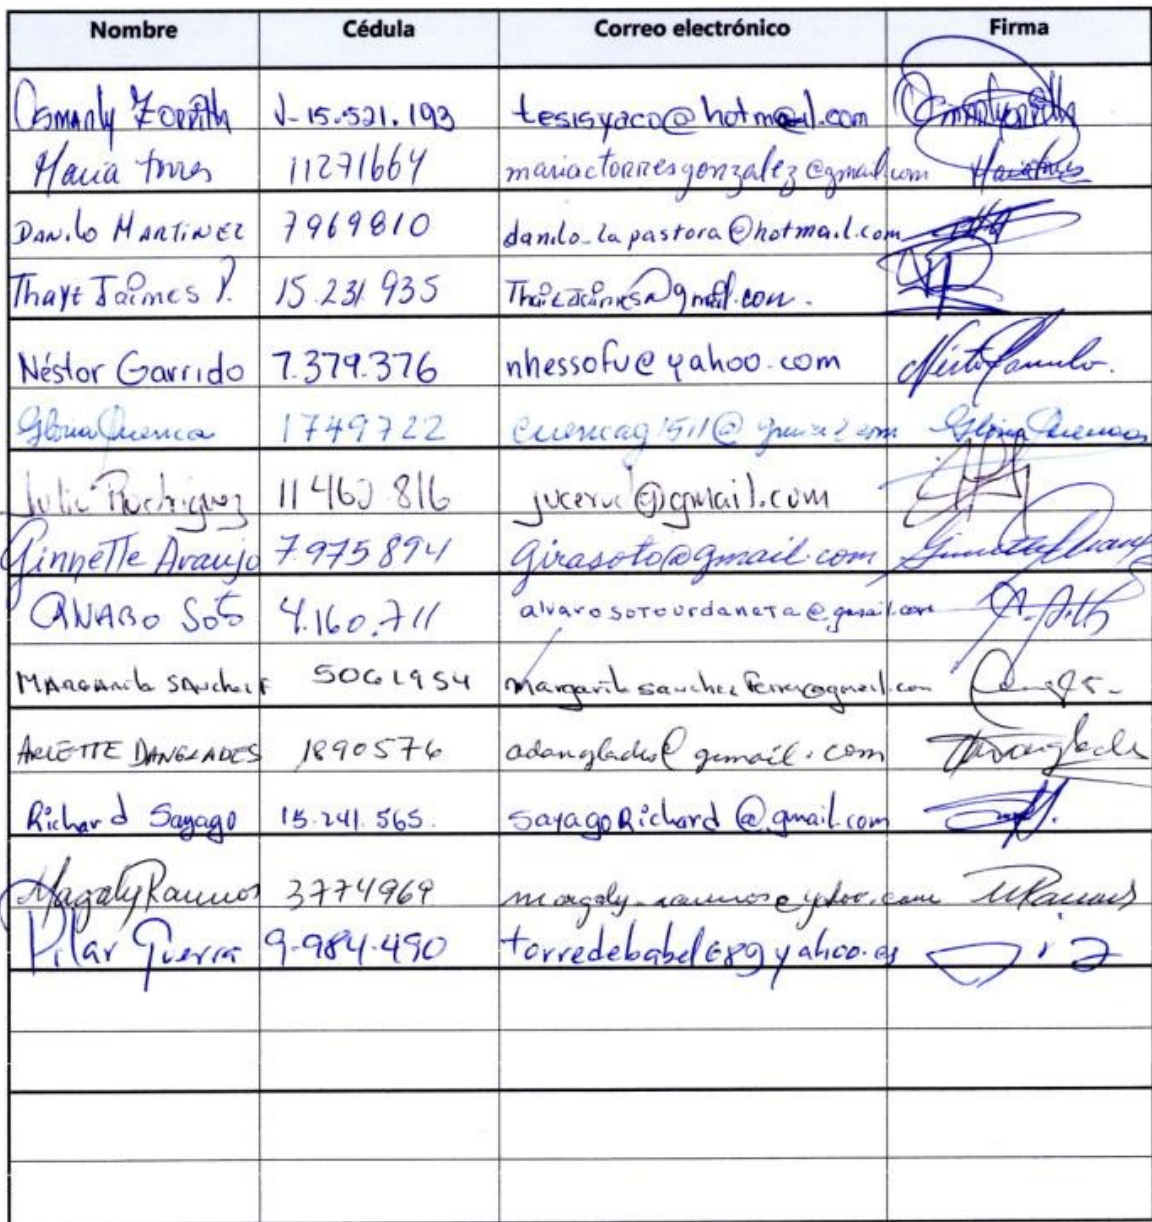 Nombre Cédula Correo electrónico Firma
Osmanly Zorrith V-15.521.193 tesisyaco@hotmail.com
Maria Torres 11271664 mariactorresgonzalez@gmail.com Maria Torres
DANILO MARTINEZ 7969810 danilo_lapastora@hotmail.com
Thayt Jaimes P. 15.231.935
Néstor Garrido 7.379.376 nhessofu@yahoo.com
Gloria Cuenca 1749722 cuencag1511@gmail.com Gloria Cuenca
Julio Rodriguez 11 460 816 @gmail.com
Ginnette Araujo 7.975894 girasoto@gmail.com Ginnette Araujo
Soto 4.160.711 alvarosotourdaneta@gmail.com
MARGARita SANchez F 5061954 margaritasanchezferrer@gmail.com
ARLETTE DANGLADES 1890576 adanglades@gmail.com
Richard Sayago 15.241.565. sayagoRichard@gmail.com
Magaly Ramos 3774969 magaly_ramos@yahoo.com MRamos
Pilar Guerra 9-984-490